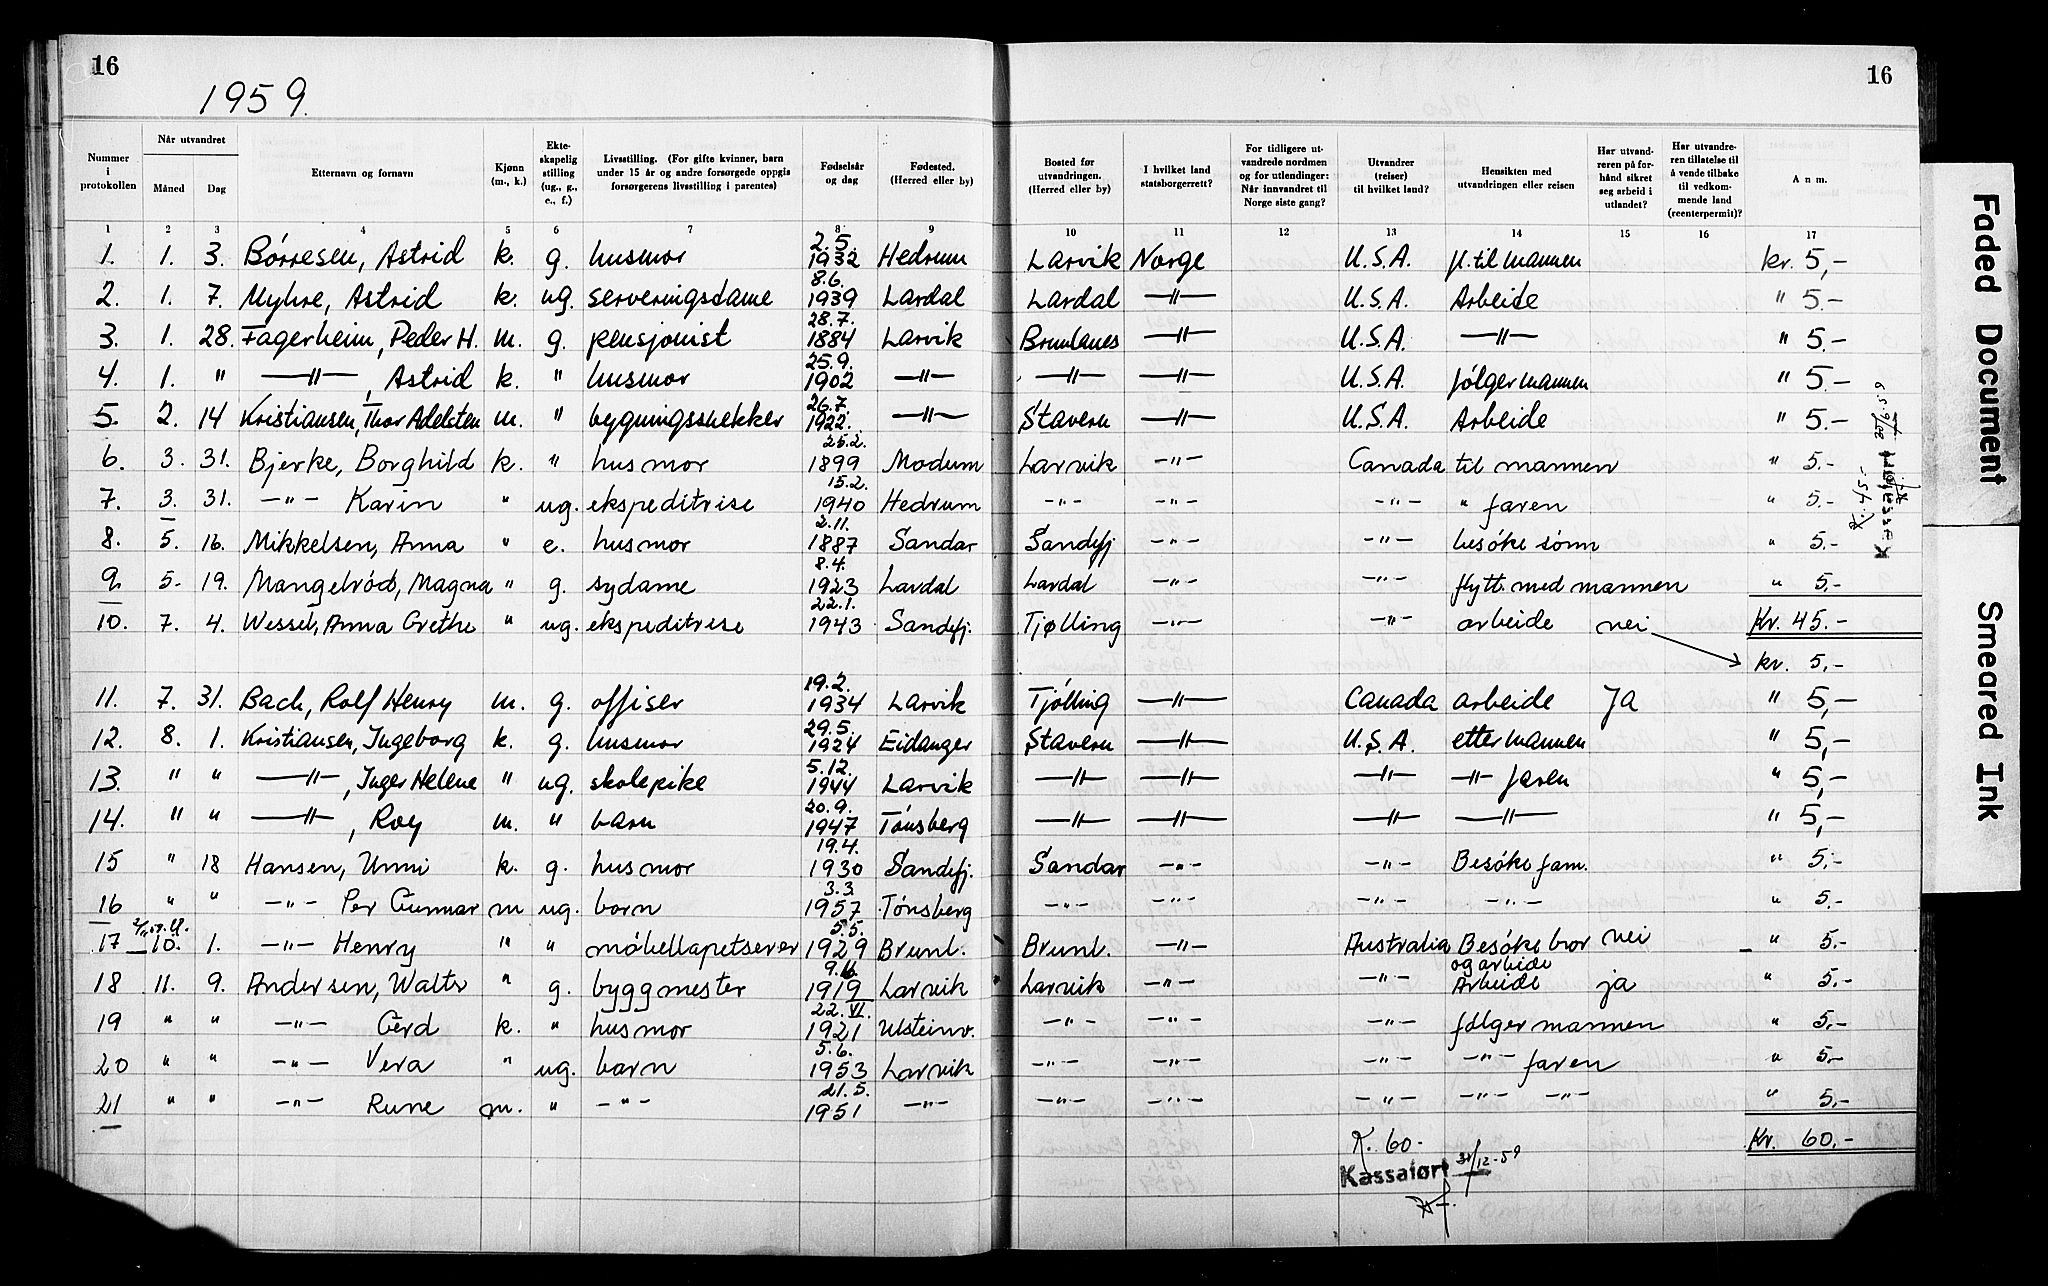 16
16
1959.
Nummer i protokollen | Når utvandret Måned | Dag | Etternavn og fornavn | Kjønn (m., k.) | Ekte-skapelig stilling (ug., g., e., f.) | Livsstilling. (For gifte kvinner, barn under 15 år og andre forsørgede oppgis forsørgerens livsstilling i parentes) | Fødselsår og dag | Fødested. (Herred eller by) | Bosted før utvandringen. (Herred eller by) | I hvilket land statsborgerrett? | For tidligere ut-vandrede nordmen og for utlendinger: Når innvandret til Norge siste gang? | Utvandrer (reiser) til hvilket land? | Hensikten med utvandringen eller reisen | Har utvand-reren på for-hånd sikret seg arbeid i utlandet? | Har utvandre-ren tillatelse til å vende tilbake til vedkom-mende land (reenterpermit)? | Anm.
1 | 2 | 3 | 4 | 5 | 6 | 7 | 8 | 9 | 10 | 11 | 12 | 13 | 14 | 15 | 16 | 17
1. | 1. | 3. | Børresen, Astrid | k. | g. | husmor | 2.5. 1932 | Hedrum | Larvik | Norge | U.S.A. | fl. til mannen | kr. 5,-
2. | 1. | 7. | Myhre, Astrid | k. | ug. | serveringsdame | 8.6. 1939 | Lardal | Lardal | —"— | U.S.A. | Arbeide | " 5.-
3. | 1. | 28. | Fagerheim, Peder H. | m. | g. | pensjonist | 28.7. 1884 | Larvik | Brunlanes | —"— | U.S.A. | —"— | " 5.-
4. | 1. | " | —"—, Astrid | k. | " | husmor | 25.9. 1902 | —"— | —"— | —"— | U.S.A. | følger mannen | " 5.-
5. | 2. | 14 | Kristiansen, Thor Adelsten | m. | " | bygningssnekker | 26.7. 1922. | —"— | Stavern | —"— | U.S.A. | Arbeide | " 5.-
6. | 3. | 31. | Bjerke, Borghild | k. | " | husmor | 25.2. 1899 | Modum | Larvik | -"- | Canada | til mannen | " 5.-
7. | 3. | 31. | -"- Karin | " | ug. | ekspeditrise | 15.2. 1940 | Hedrum | -"- | -"- | -"- | " faren | " 5.-
8. | 5. | 16. | Mikkelsen, Anna | " | e. | husmor | 2.11. 1887 | Sandar | Sandefj | -"- | -"- | besøke sønn | " 5.-
9. | 5. | 19. | Mangelrød, Magna | " | g. | sydame | 8.4. 1923 | Lardal | Lardal | -"- | -"- | flytt. med mannen | " 5.-
10. | 7. | 4. | Wessel, Anna Grethe | " | ug. | ekspeditrise | 22.1. 1943 | Sandefj. | Tjølling | -"- | -"- | arbeide | nei | Kr. 45.-
kr. 5,-
11. | 7. | 31. | Bach, Rolf Henry | m. | g. | offiser | 19.2. 1934 | Larvik | Tjølling | —"— | Canada | arbeide | Ja | " 5,-
12. | 8. | 1. | Kristiansen, Ingeborg | k. | g. | husmor | 29.5. 1924 | Eidanger | Stavern | —"— | U.S.A. | etter mannen | " 5,-
13. | " | " | —"—, Inger Helene | " | ug. | skolepike | 5.12. 1944 | Larvik | —"— | —"— | —"— | —"— faren | " 5,-
14. | " | " | —"—, Roy | m. | " | barn | 20.9. 1947 | Tønsberg | —"— | —"— | —"— | —"— | " 5,-
15 | " | 18 | Hansen, Unni | k. | g. | husmor | 19.4. 1930 | Sandefj. | Sandar | -"- | -"- | Besøke fam. | " 5,-
16 | " | " | -"- Per Gunnar | m | ug. | barn | 3.3. 1957 | Tønsberg | -"- | -"- | -"- | -"- | " 5.-
17 | 10. | 1. | -"- Henry | " | " | møbeltapetserer | 5.5. 1929 | Brunl. | Brunl. | -"- | Australia | Besøke bror og arbeide | nei | " 5.-
18 | 11. | 9. | Andersen, Walter | " | g. | byggmester | 1919 | Larvik | Larvik | -"- | -"- | Arbeide | ja | " 5.-
19 | " | " | -"- Gerd | k. | " | husmor | 22.VI. 1921 | Ulsteinv. | -"- | -"- | -"- | følger mannen | " 5,-
20 | " | " | -"- Vera | " | ug. | barn | 5.6. 1953 | Larvik | -"- | -"- | -"- | -"- faren | " 5,-
21 | " | " | -"- Rune | m. | " | -"- | 21.5. 1951 | -"- | -"- | -"- | -"- | -"- -"- | " 5,-
K. 60- | Kr. 60,-
Kassaført 31/12-59
Kassaført
Faded Document
Smeared Ink